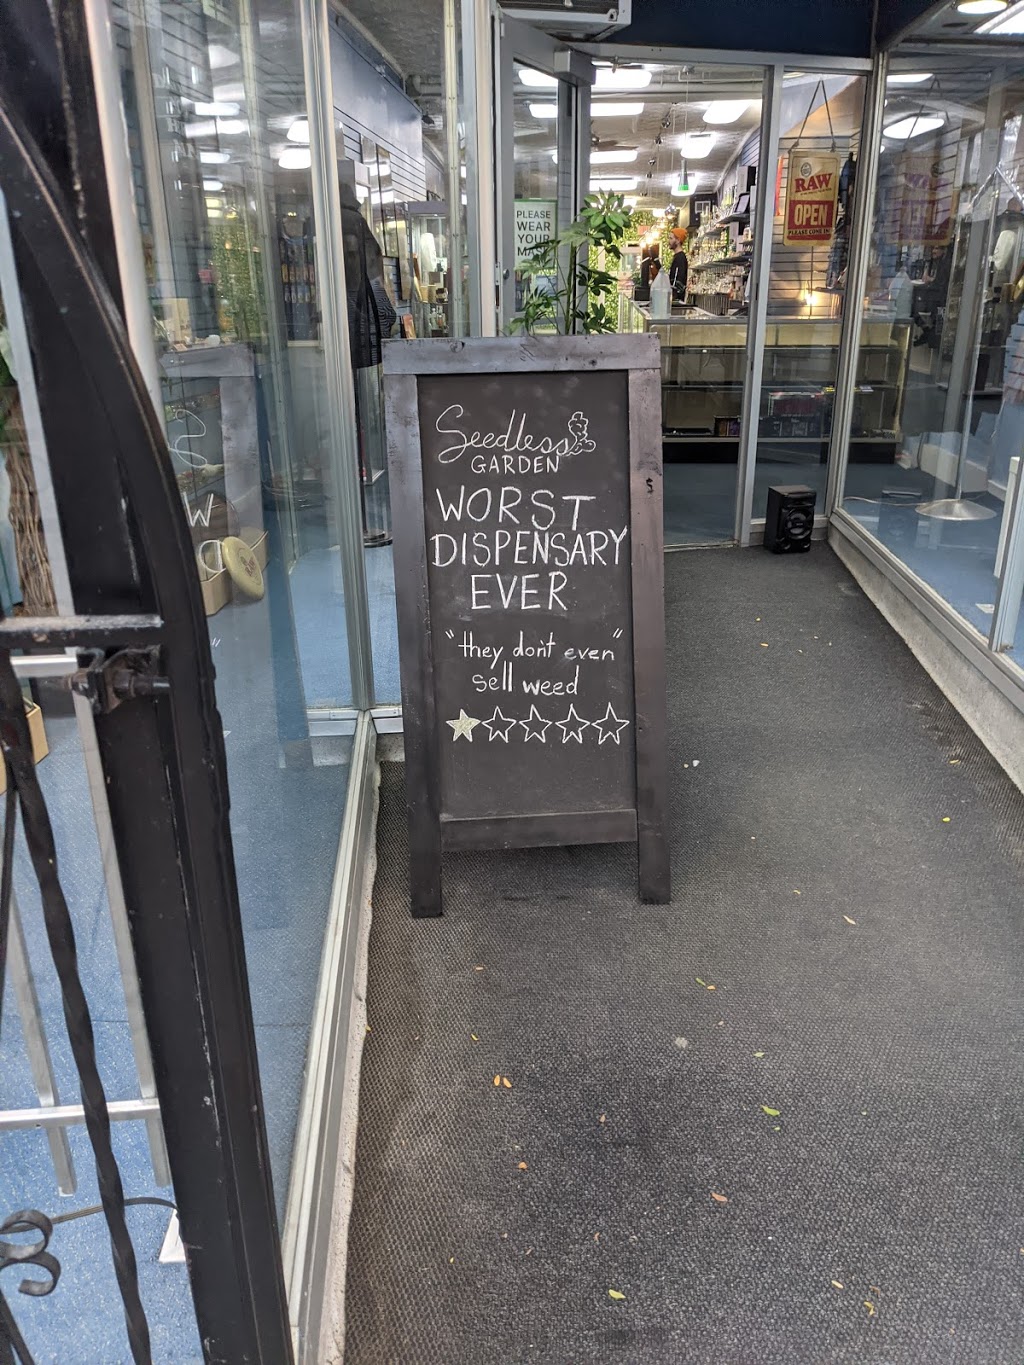 PLEASE
WEAR
YOUR
MA
RAW
OPEN
PLEASE COME IN
Seedless
GARDEN
WORST
DISPENSARY
EVER
"they don't even"
sell weed
$
W